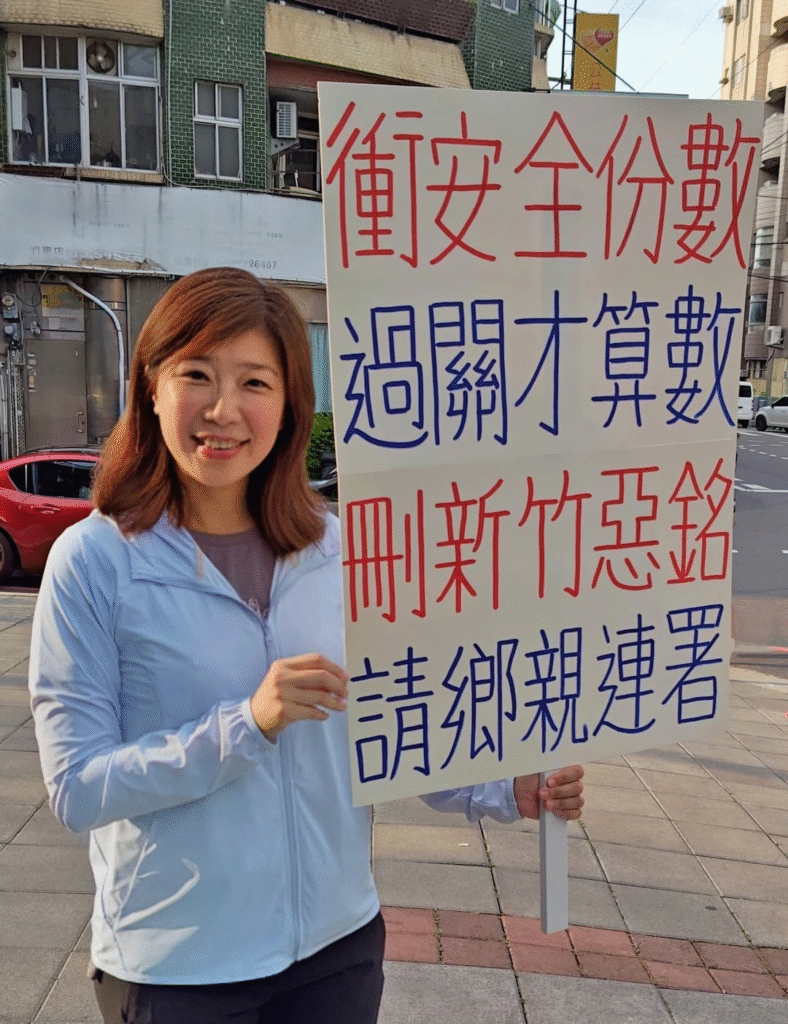 衝安全份數
過關才算數
刪新竹惡銘
請鄉親連署